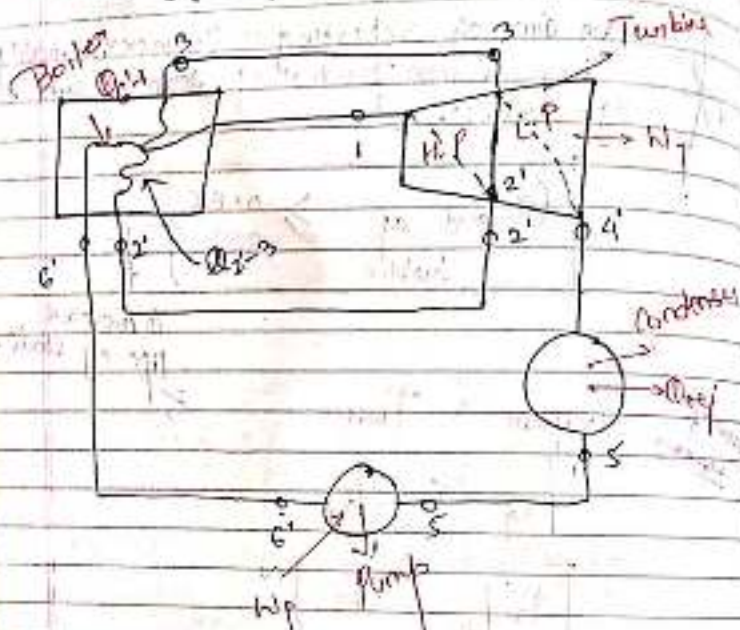 Boiler
3
3
Turbine
1
H.P
L.P
W_T
2'
2'
4'
6'
2'
Q2'-3
Condenser
Qrej
5
6'
5
Pump
Wp